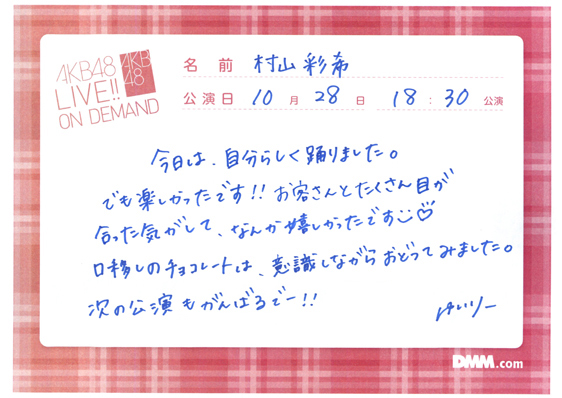 AKB48
LIVE!!
ON DEMAND
AKB
48
名前 村山彩希
公演日 10月28日 18:30公演
今日は、自分らしく踊りました。
でも楽しかったです!! お客さんとたくさん目が
合った気がして、なんか嬉しかったです
口移しのチョコレートは、意識しながらおどってみました。
次の公演もがんばるでー!!
ゆいりー
DMM.com